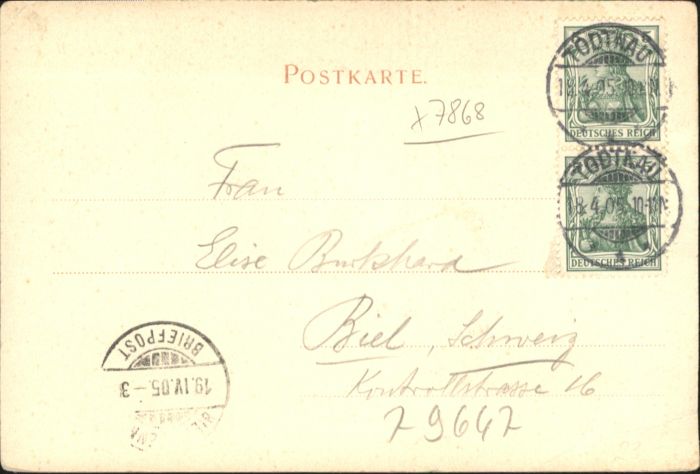 POSTKARTE.
x7868
TODTNAU
18.4.05.10-11N.
DEUTSCHES REICH
TODTNAU
18.4.05.10-11N.
DEUTSCHES REICH
Frau
Elise Burkhard
Biel, Schweiz
Kontrollstrasse 16
79647
BRIEFPOST
19.IV.05.-3